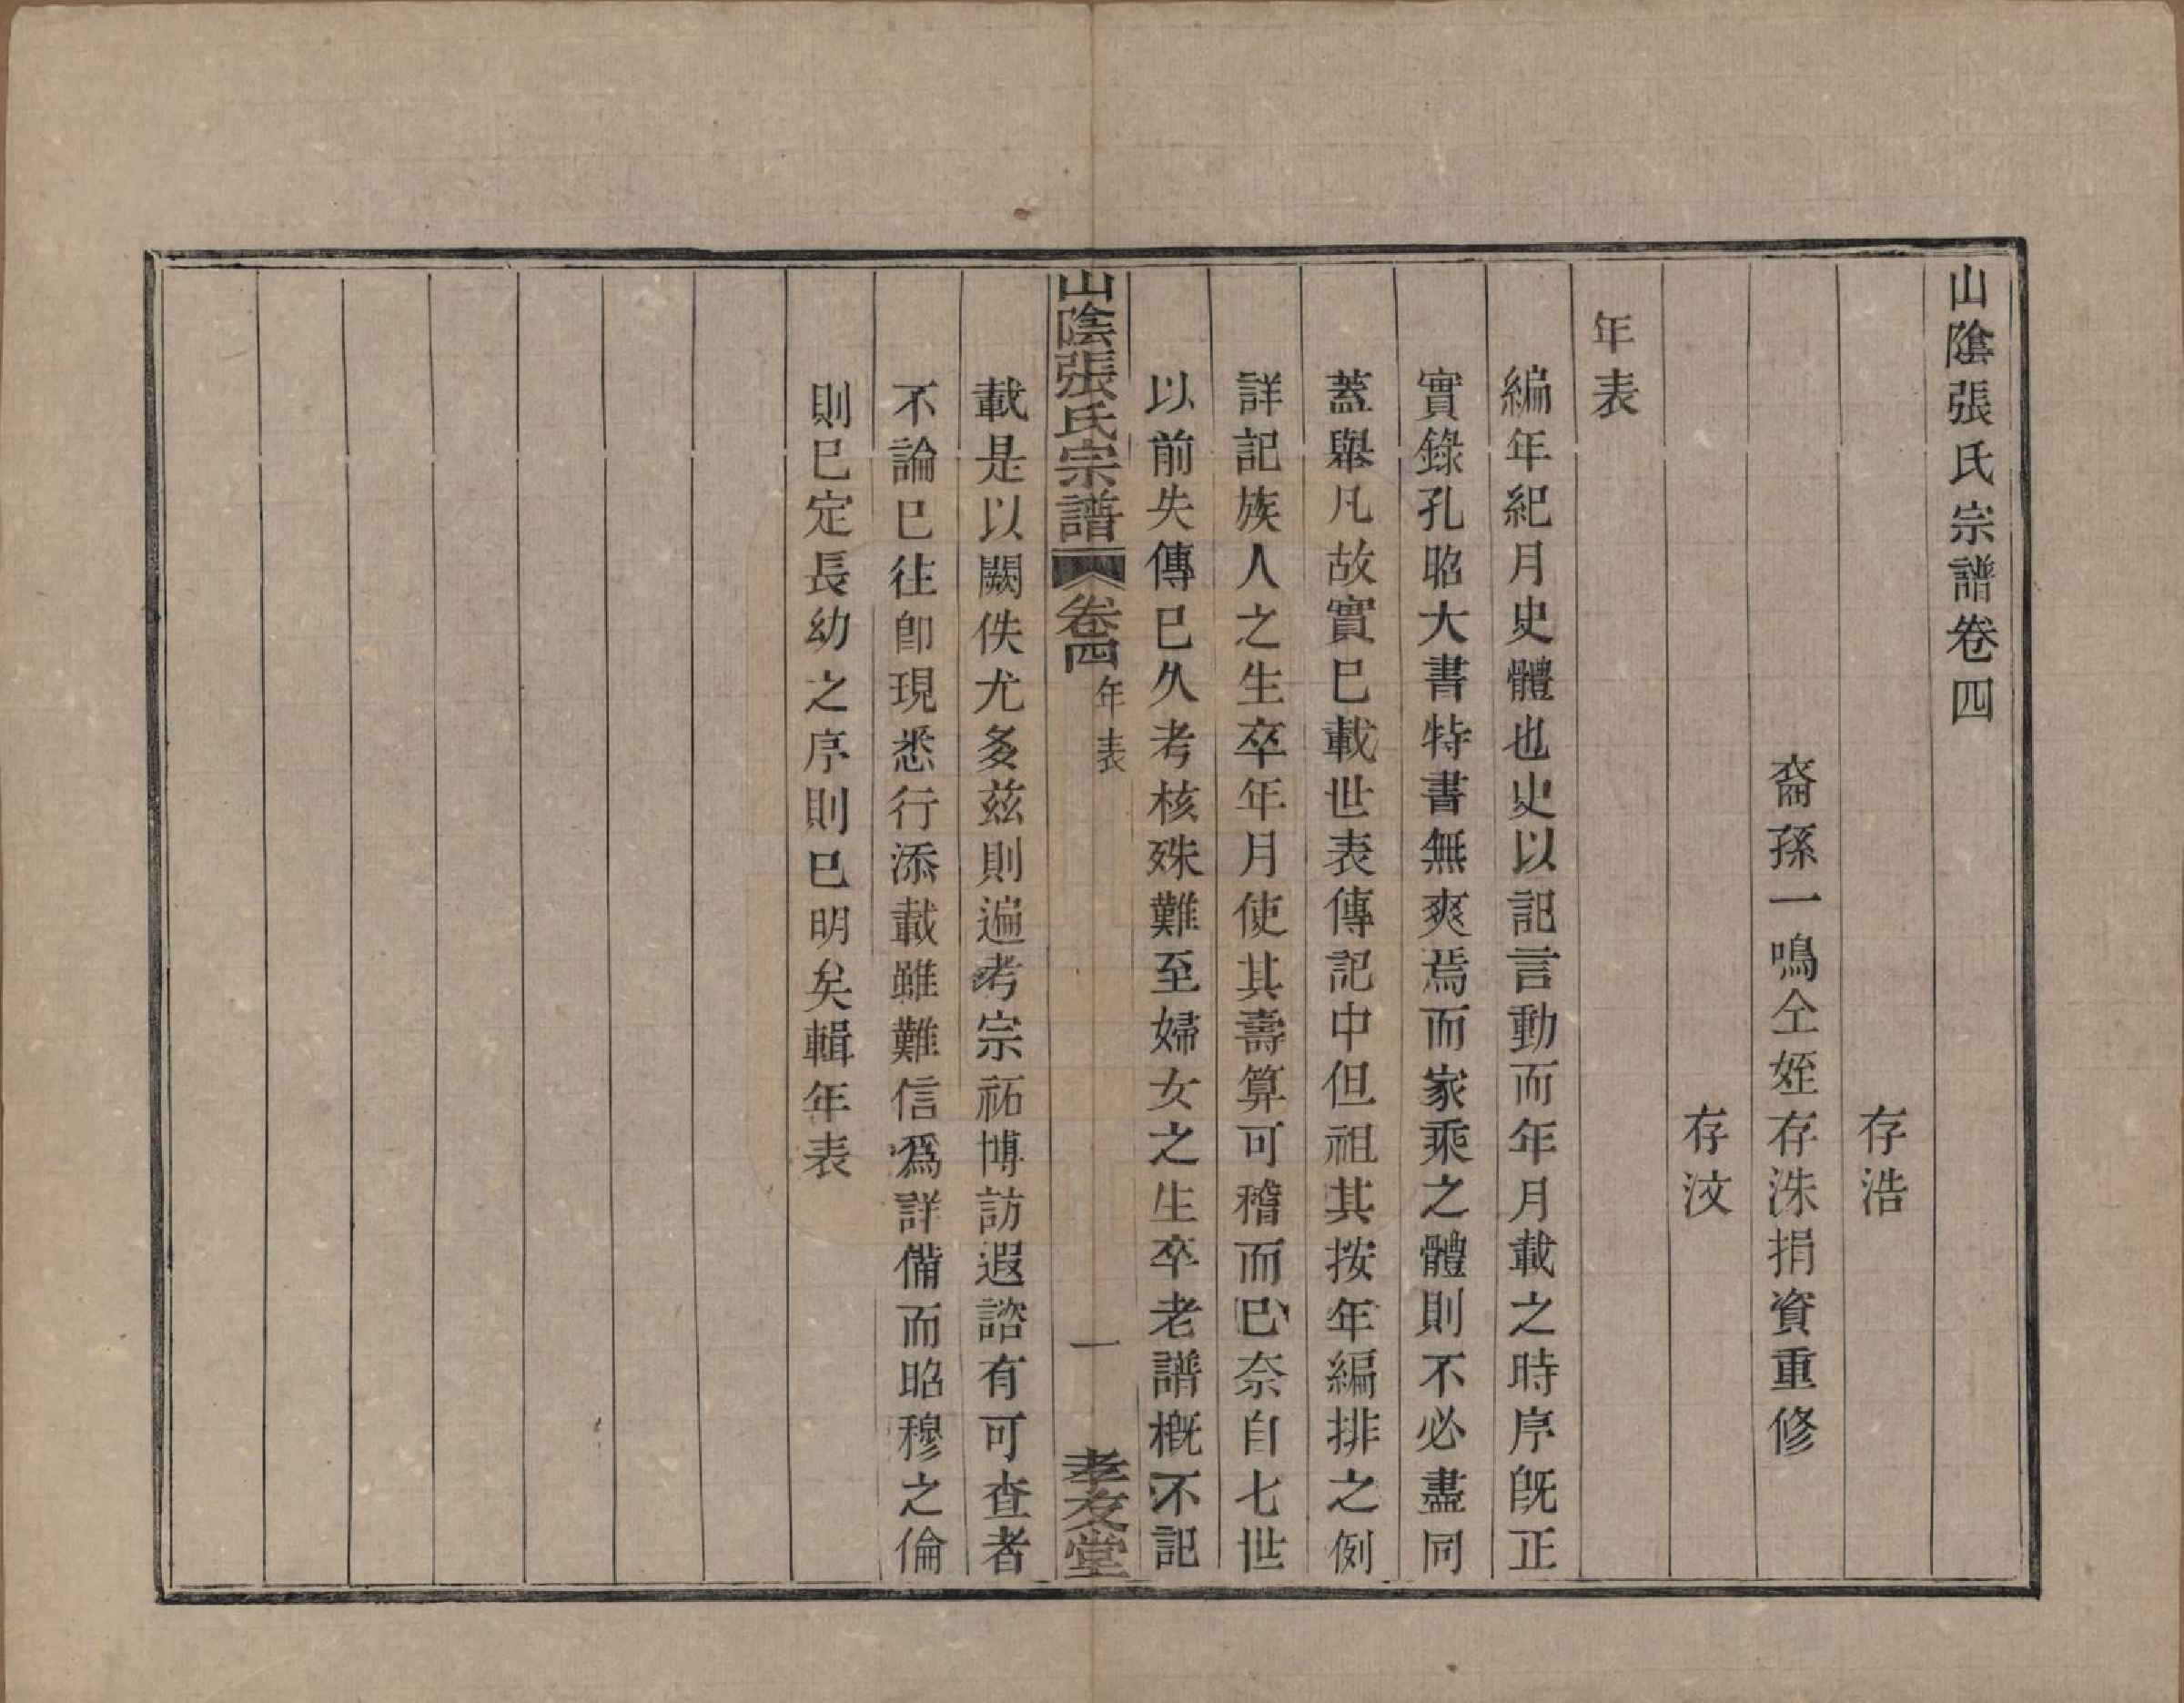 山陰張氏宗譜卷四
存浩
裔孫一鳴仝姪存洙捐資重修
存汶
年表
編年紀月史體也史以記言動而年月載之時序旣正
實錄孔昭大書特書無爽焉而家乘之體則不必盡同
蓋舉凡故實巳載世表傳記中但祖其按年編排之例
詳記族人之生卒年月使其壽算可稽而巳奈自七世
以前失傳巳久考核殊難至婦女之生卒老譜槪不記
山陰張氏宗譜 卷四 年表 一 孝友堂
載是以闕佚尤多茲則遍考宗祏博訪遐諮有可查者
不論巳往卽現悉行添載雖難信爲詳備而昭穆之倫
則巳定長幼之序則巳明矣輯年表